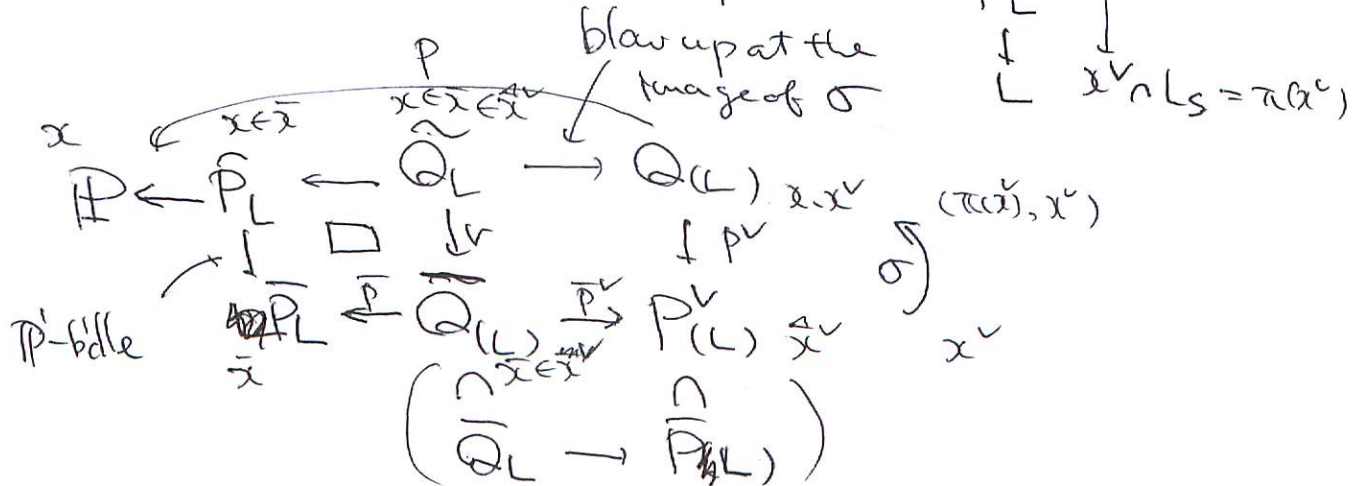 blow up at the
L
image of σ
L x^∨ ∩ L_S = π(x^∨)
P
x x∈x̄ x∈x̄∈x^∨
ℙ ← P̃_L ← Q̃_L → Q_(L) x, x^∨ (π(x^∨), x^∨)
↓ □ ↓r ↓ p^∨ σ
ℙ¹-b'dle P̄_L ←p̄ Q̄_(L) →p̄^∨ P^∨_(L) x^∨ x^∨
x̄ x̄∈x^∨
( ∩ ∩ )
Q̄_L →